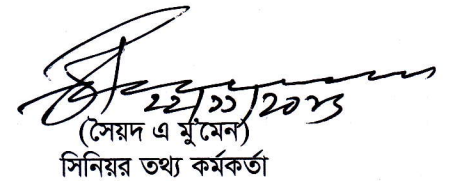 ২২/১১/২০২১
(সৈয়দ এ মু'মেন)
সিনিয়র তথ্য কর্মকর্তা